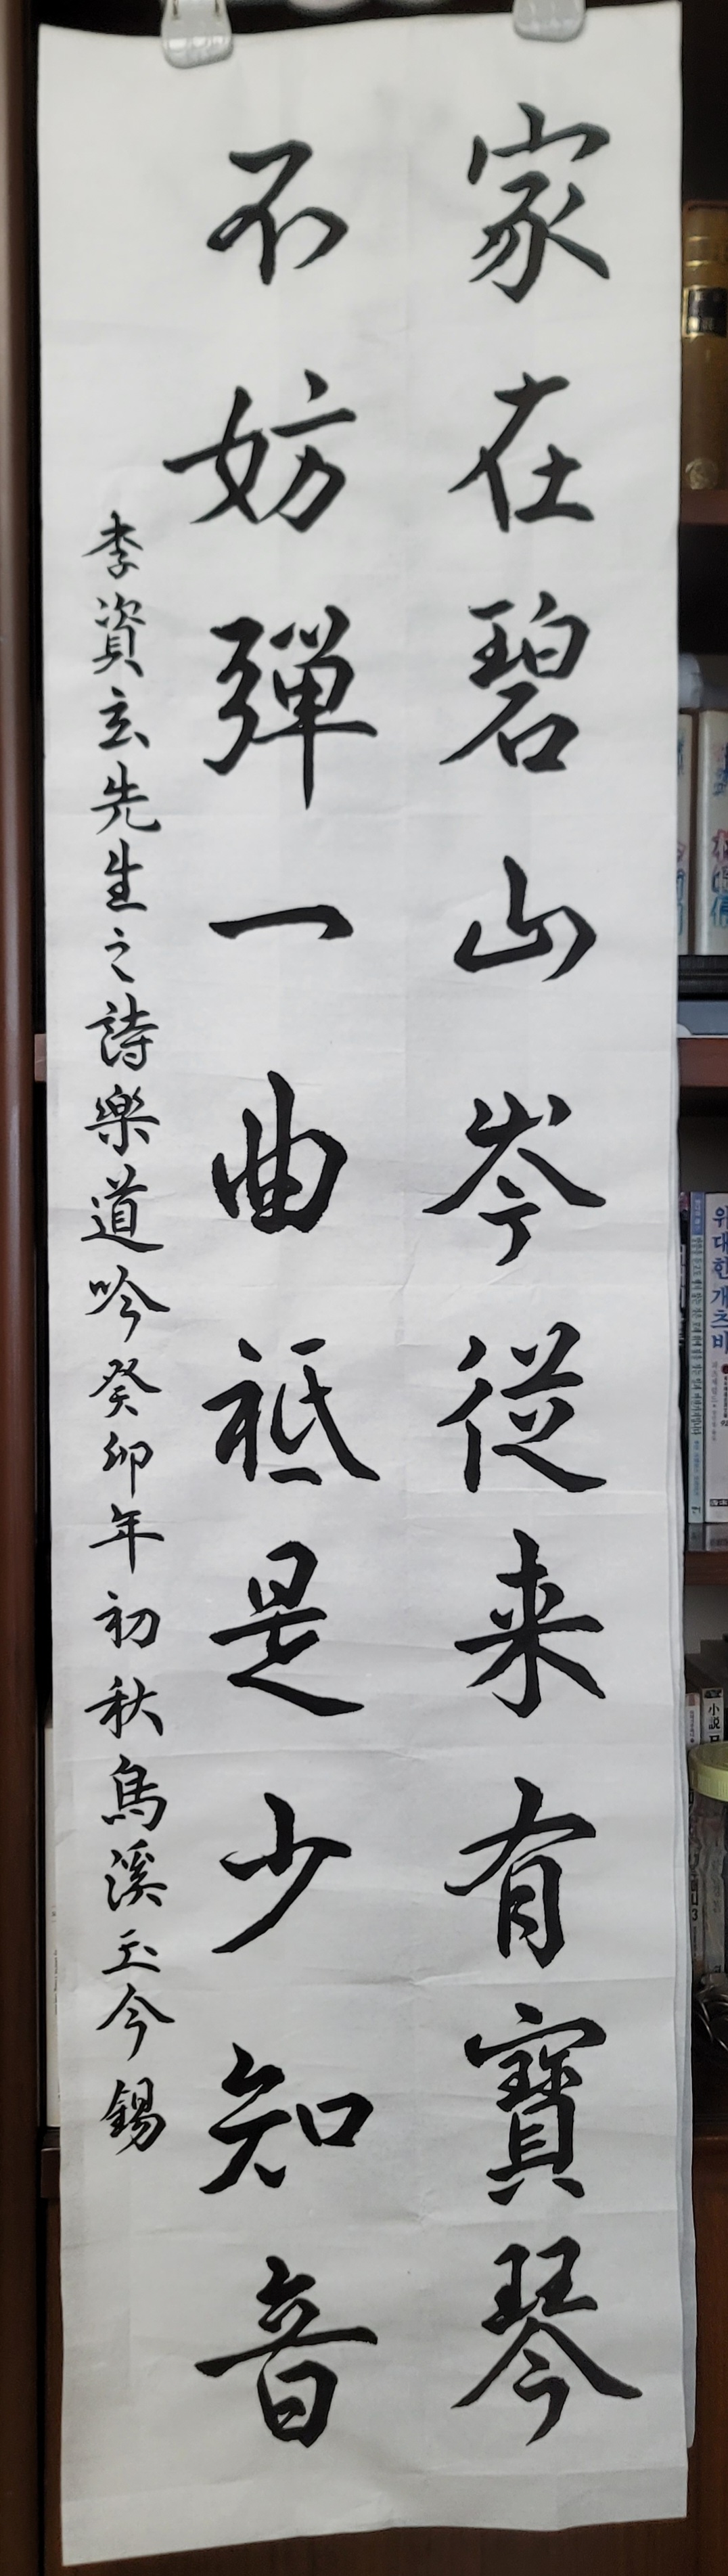 家在碧山岑從来有寶琴
不妨彈一曲祗是少知音
李資玄先生之詩樂道吟癸卯年初秋烏溪玉今錫
위대한개츠비
小説